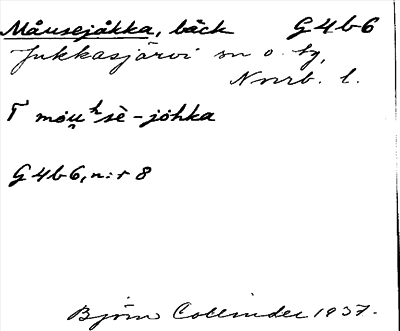 Måusejåkka, bäck G4b6
Jukkasjärvi sn o. by,
Norrb. l.
mou̯ʰsè-jòhka
G4b6, n:r 8
Björn Collinder 1937.